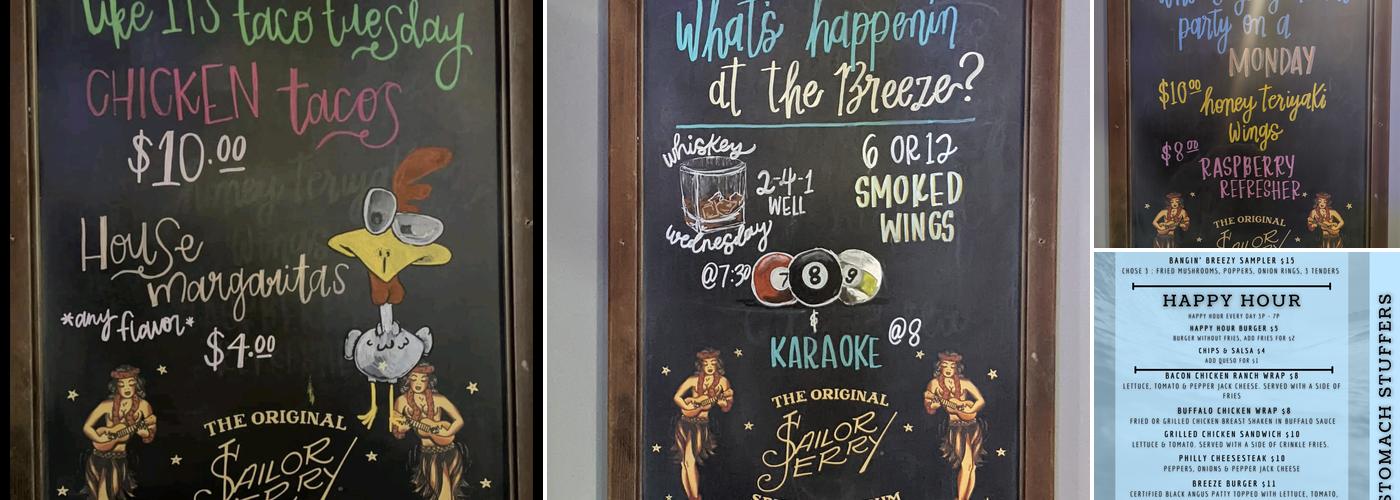 like ITS taco tuesday
CHICKEN tacos
$10.00
House
margaritas
*any flavor*
$4.00
THE ORIGINAL
SAILOR
JERRY
What's happenin
at the Breeze?
whiskey
2-4-1
WELL
wednesday
6 OR 12
SMOKED
WINGS
@7:30
7 8 9
&
KARAOKE @8
THE ORIGINAL
SAILOR
JERRY
party on a
MONDAY
$10.00 honey teriyaki
wings
$8.00 RASPBERRY
REFRESHER
THE ORIGINAL
SAILOR
BANGIN' BREEZY SAMPLER $15
CHOSE 3 : FRIED MUSHROOMS, POPPERS, ONION RINGS, 3 TENDERS
HAPPY HOUR
HAPPY HOUR EVERY DAY 3P - 7P
HAPPY HOUR BURGER $5
BURGER WITHOUT FRIES, ADD FRIES FOR $2
CHIPS & SALSA $4
ADD QUESO FOR $1
BACON CHICKEN RANCH WRAP $8
LETTUCE, TOMATO & PEPPER JACK CHEESE. SERVED WITH A SIDE OF
FRIES
BUFFALO CHICKEN WRAP $8
FRIED OR GRILLED CHICKEN BREAST SHAKEN IN BUFFALO SAUCE
GRILLED CHICKEN SANDWICH $10
LETTUCE & TOMATO. SERVED WITH A SIDE OF CRINKLE FRIES.
PHILLY CHEESESTEAK $10
PEPPERS, ONIONS & PEPPER JACK CHEESE
BREEZE BURGER $11
CERTIFIED BLACK ANGUS PATTY TOPPED WITH LETTUCE, TOMATO,
TOMACH STUFFERS